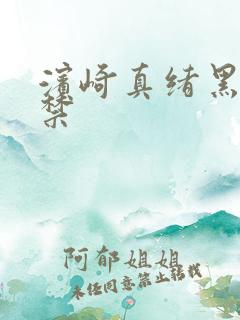 濱崎真绪黑
禁
阿郁姐姐
未经同意禁止转载